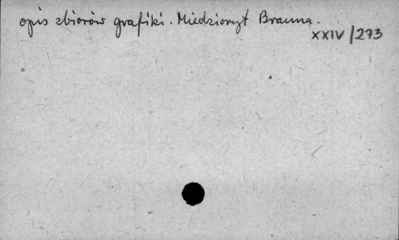 opis zbiorów grafiki. Miedzioryt Brauna.
XXIV/273